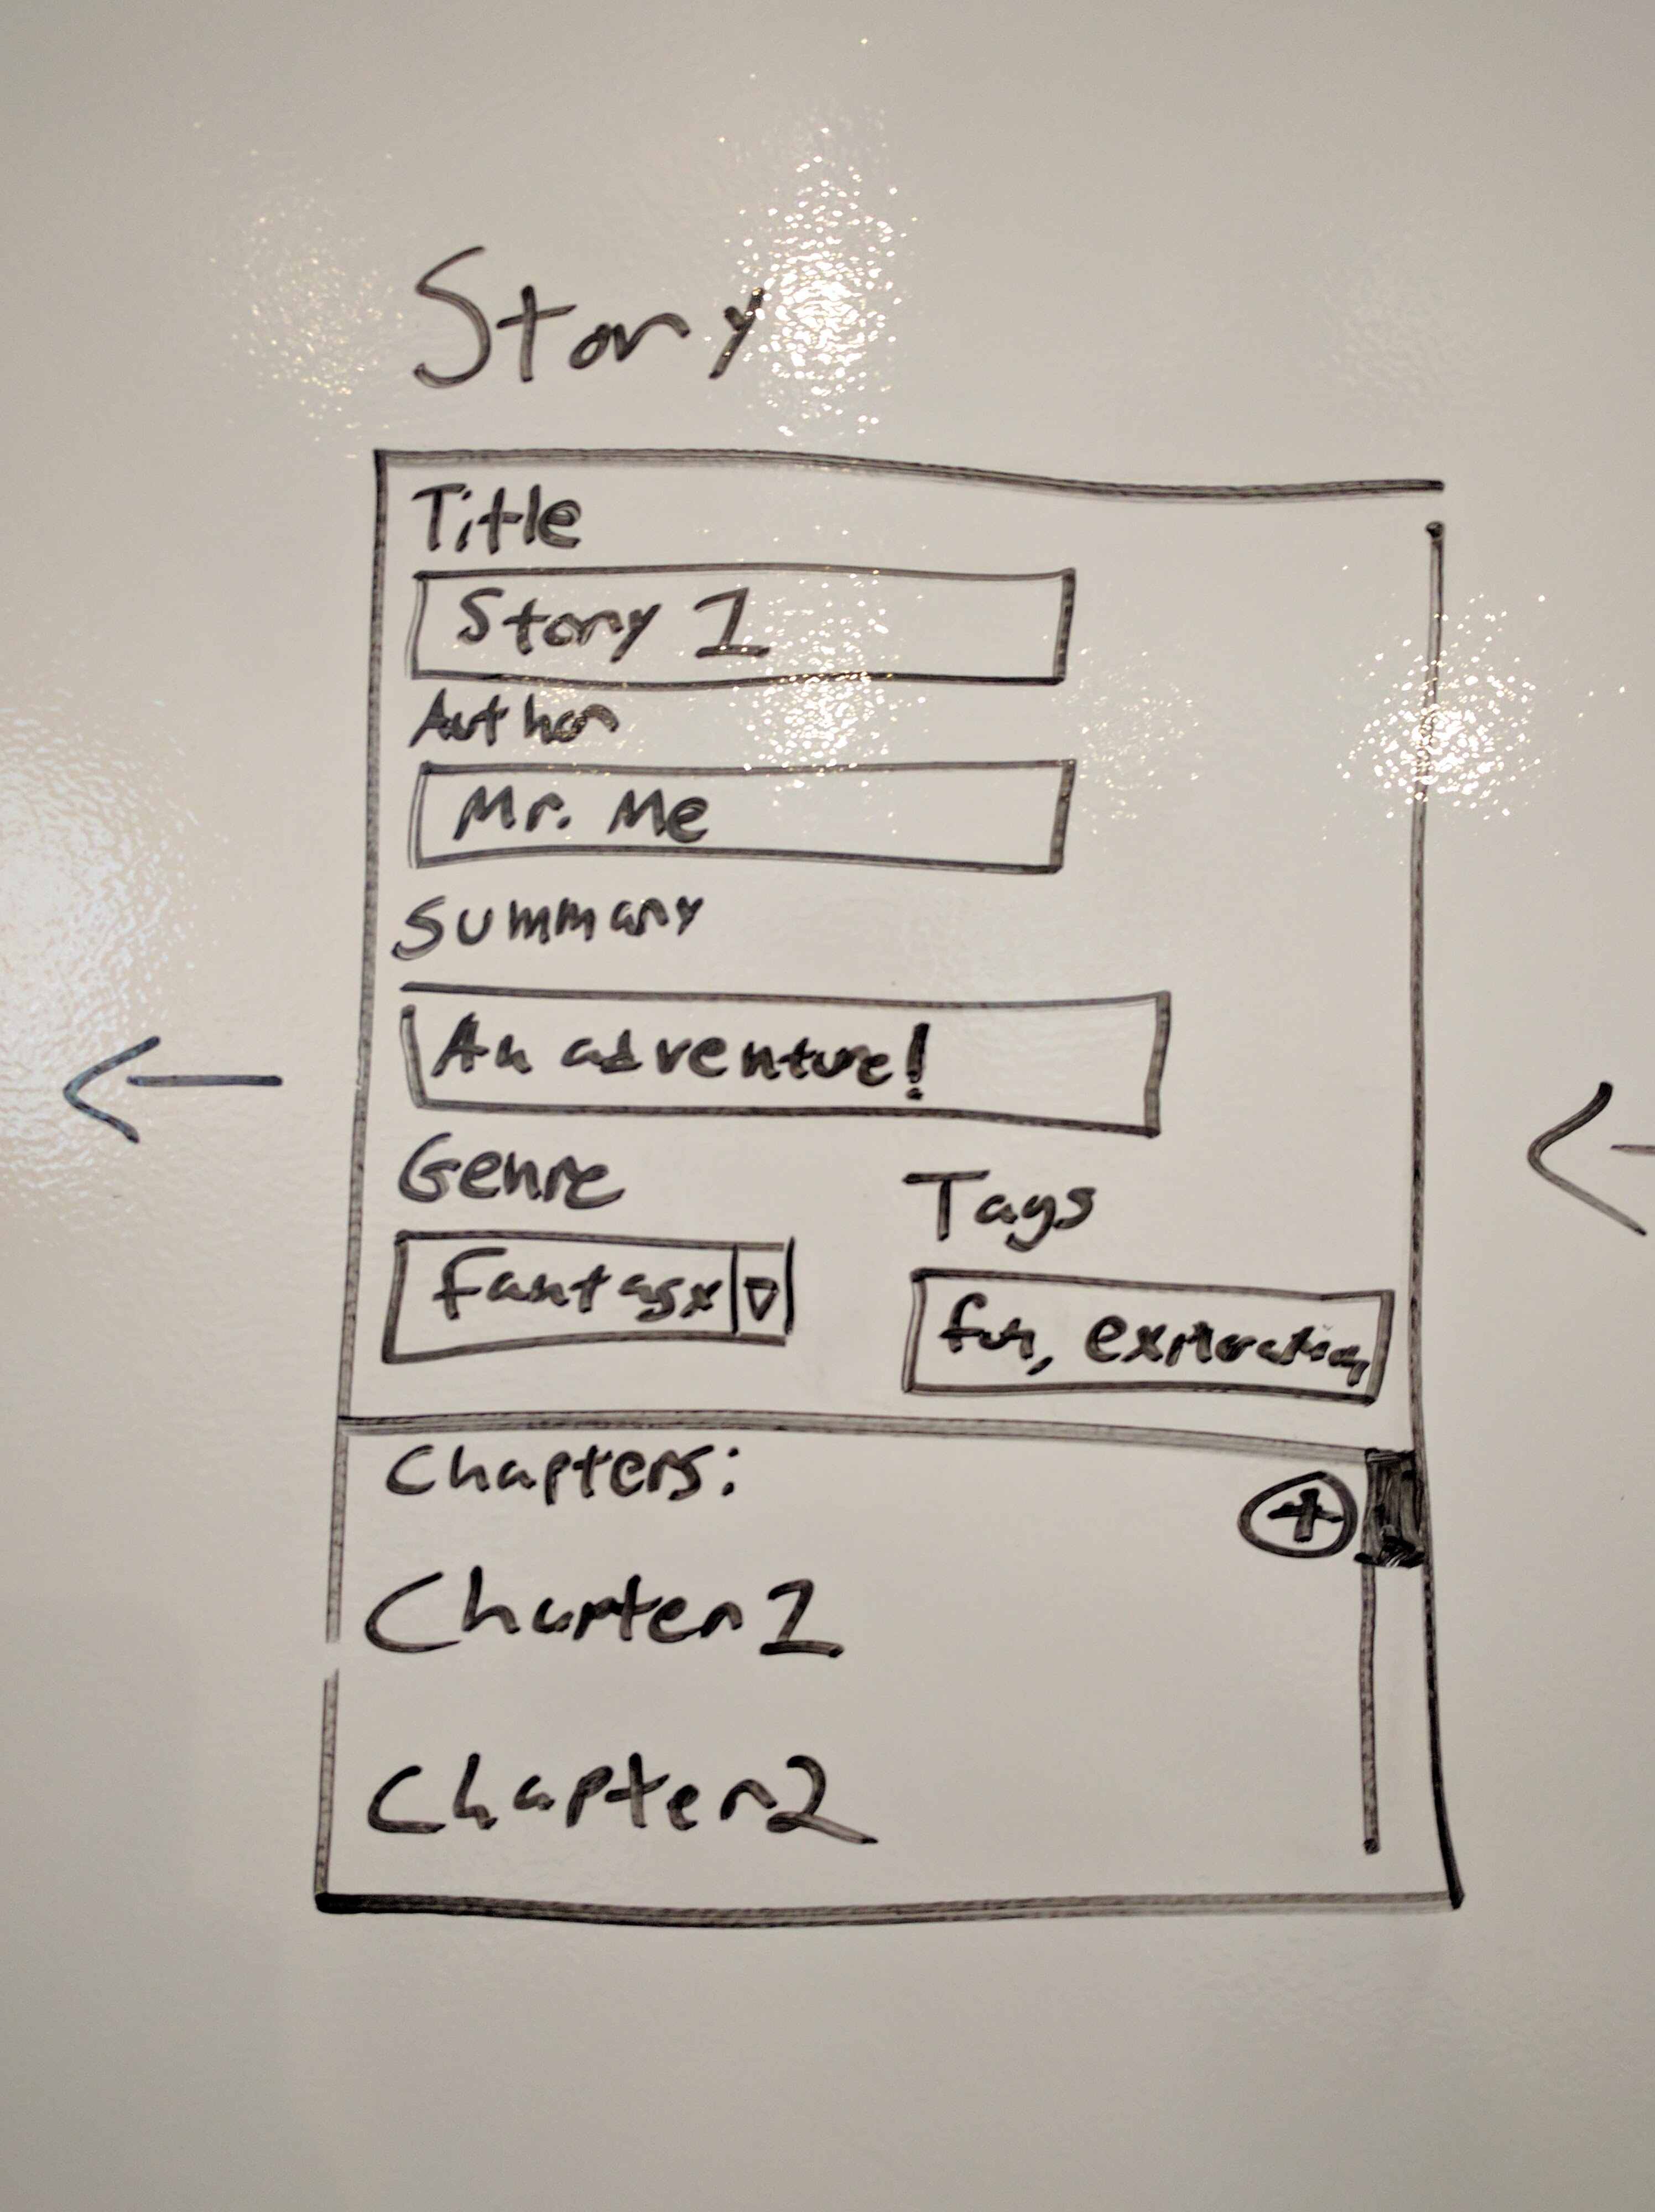 Story
Title
Story 1
Author
Mr. Me
Summary
An adventure!
Genre
Tags
Fantasy
fun, exploration
Chapters:
+
Chapter 1
Chapter 2